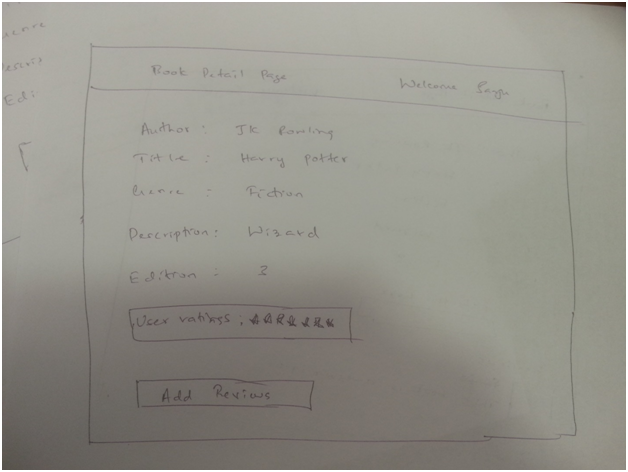 enre
Edi
Book Detail Page
Welcome
Author : JK Rowling
Title : Harry Potter
Genre : Fiction
Description : Wizard
Edition : 3
User ratings :
Add Reviews